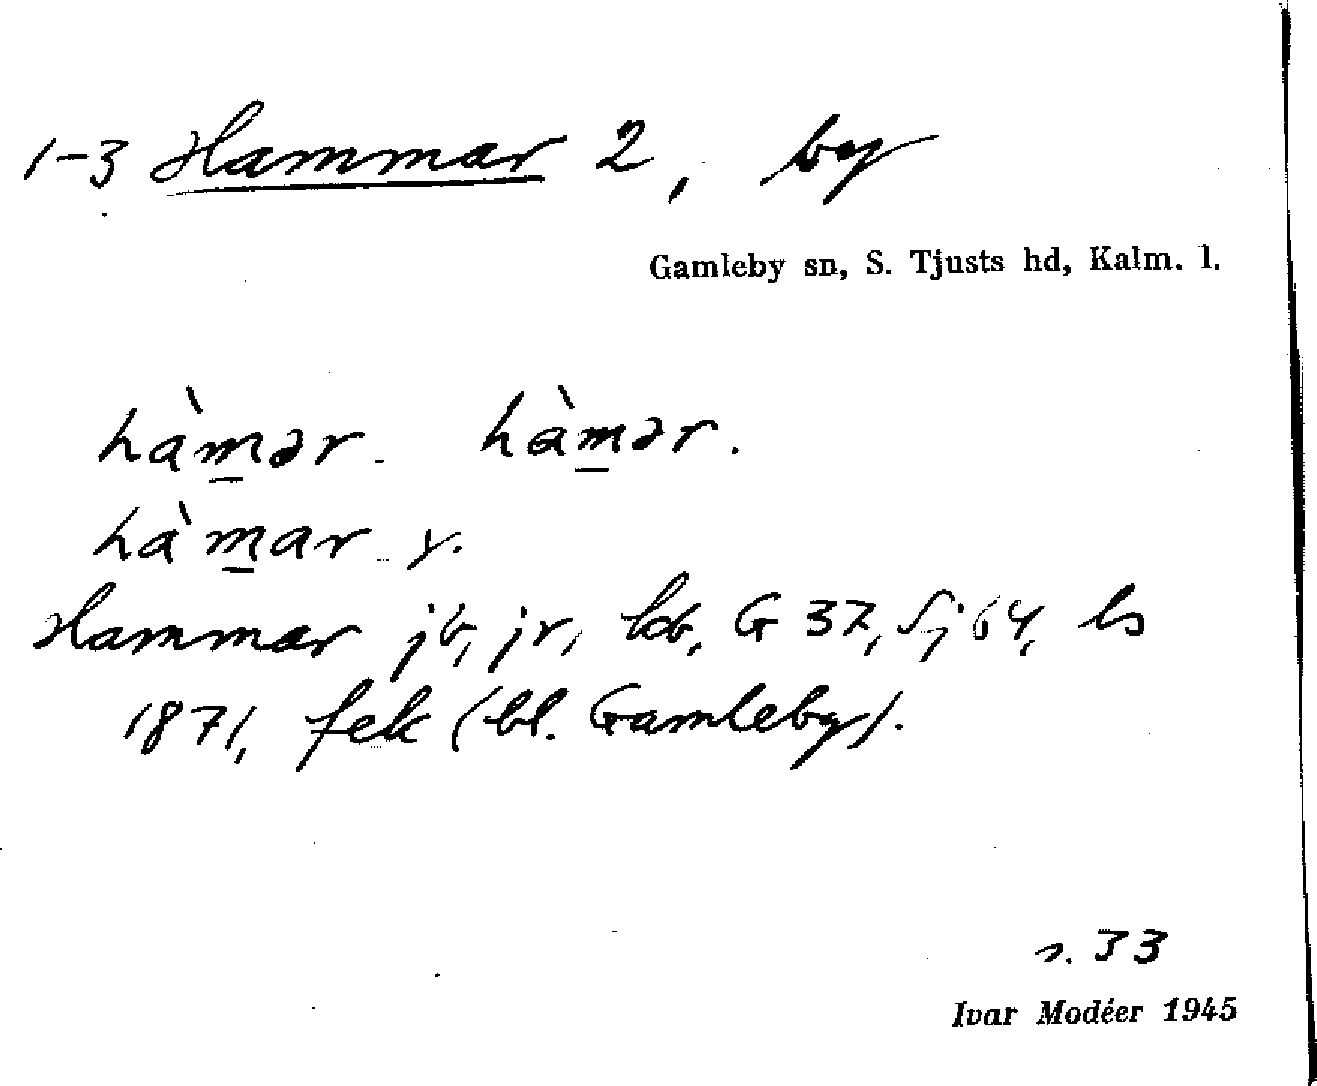 1-3 Hammar 2, by
Gamleby sn, S. Tjusts hd, Kalm. l.
hàm̲ər. hàm̲ər.
hàm̲ar y.
Hammar jb, jr, kb, G 37, Sj 64, ls
1871, fek (bl. Gamleby).
s. 33
Ivar Modéer 1945